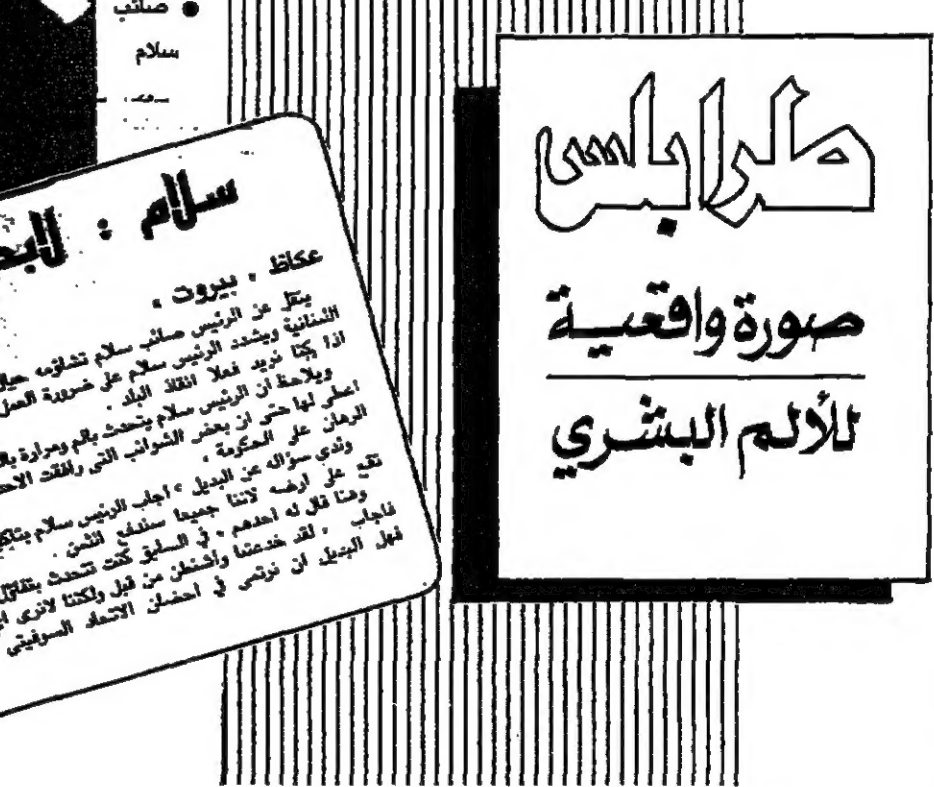 طرابلس
صورة واقعية
للألم البشري
● صائب
سلام
سلام :
عكاظ ، بيروت ،
ينقل عن الرئيس صائب سلام تشاؤمه حيال
اللبنانية ويشدد الرئيس سلام على ضرورة العمل
اذا كنا نريد فعلا انقاذ البلد .
ويلاحظ ان الرئيس سلام يتحدث بالم ومرارة
اعطى لها حتى ان بعض الشوائب التي رافقت
الرهان على الحكومة ،
ولدى سؤاله عن البديل ، اجاب الرئيس سلام
تقع على ارضه لاننا جميعا سندفع الثمن .
وهنا قال له احدهم ، في السابق كنت تتحدث بتفاؤل
فاجاب ، لقد خدعتنا واشنطن من قبل ولكننا لانرى
فهل البديل ان نرتمي في احضان الاتحاد السوفيتي